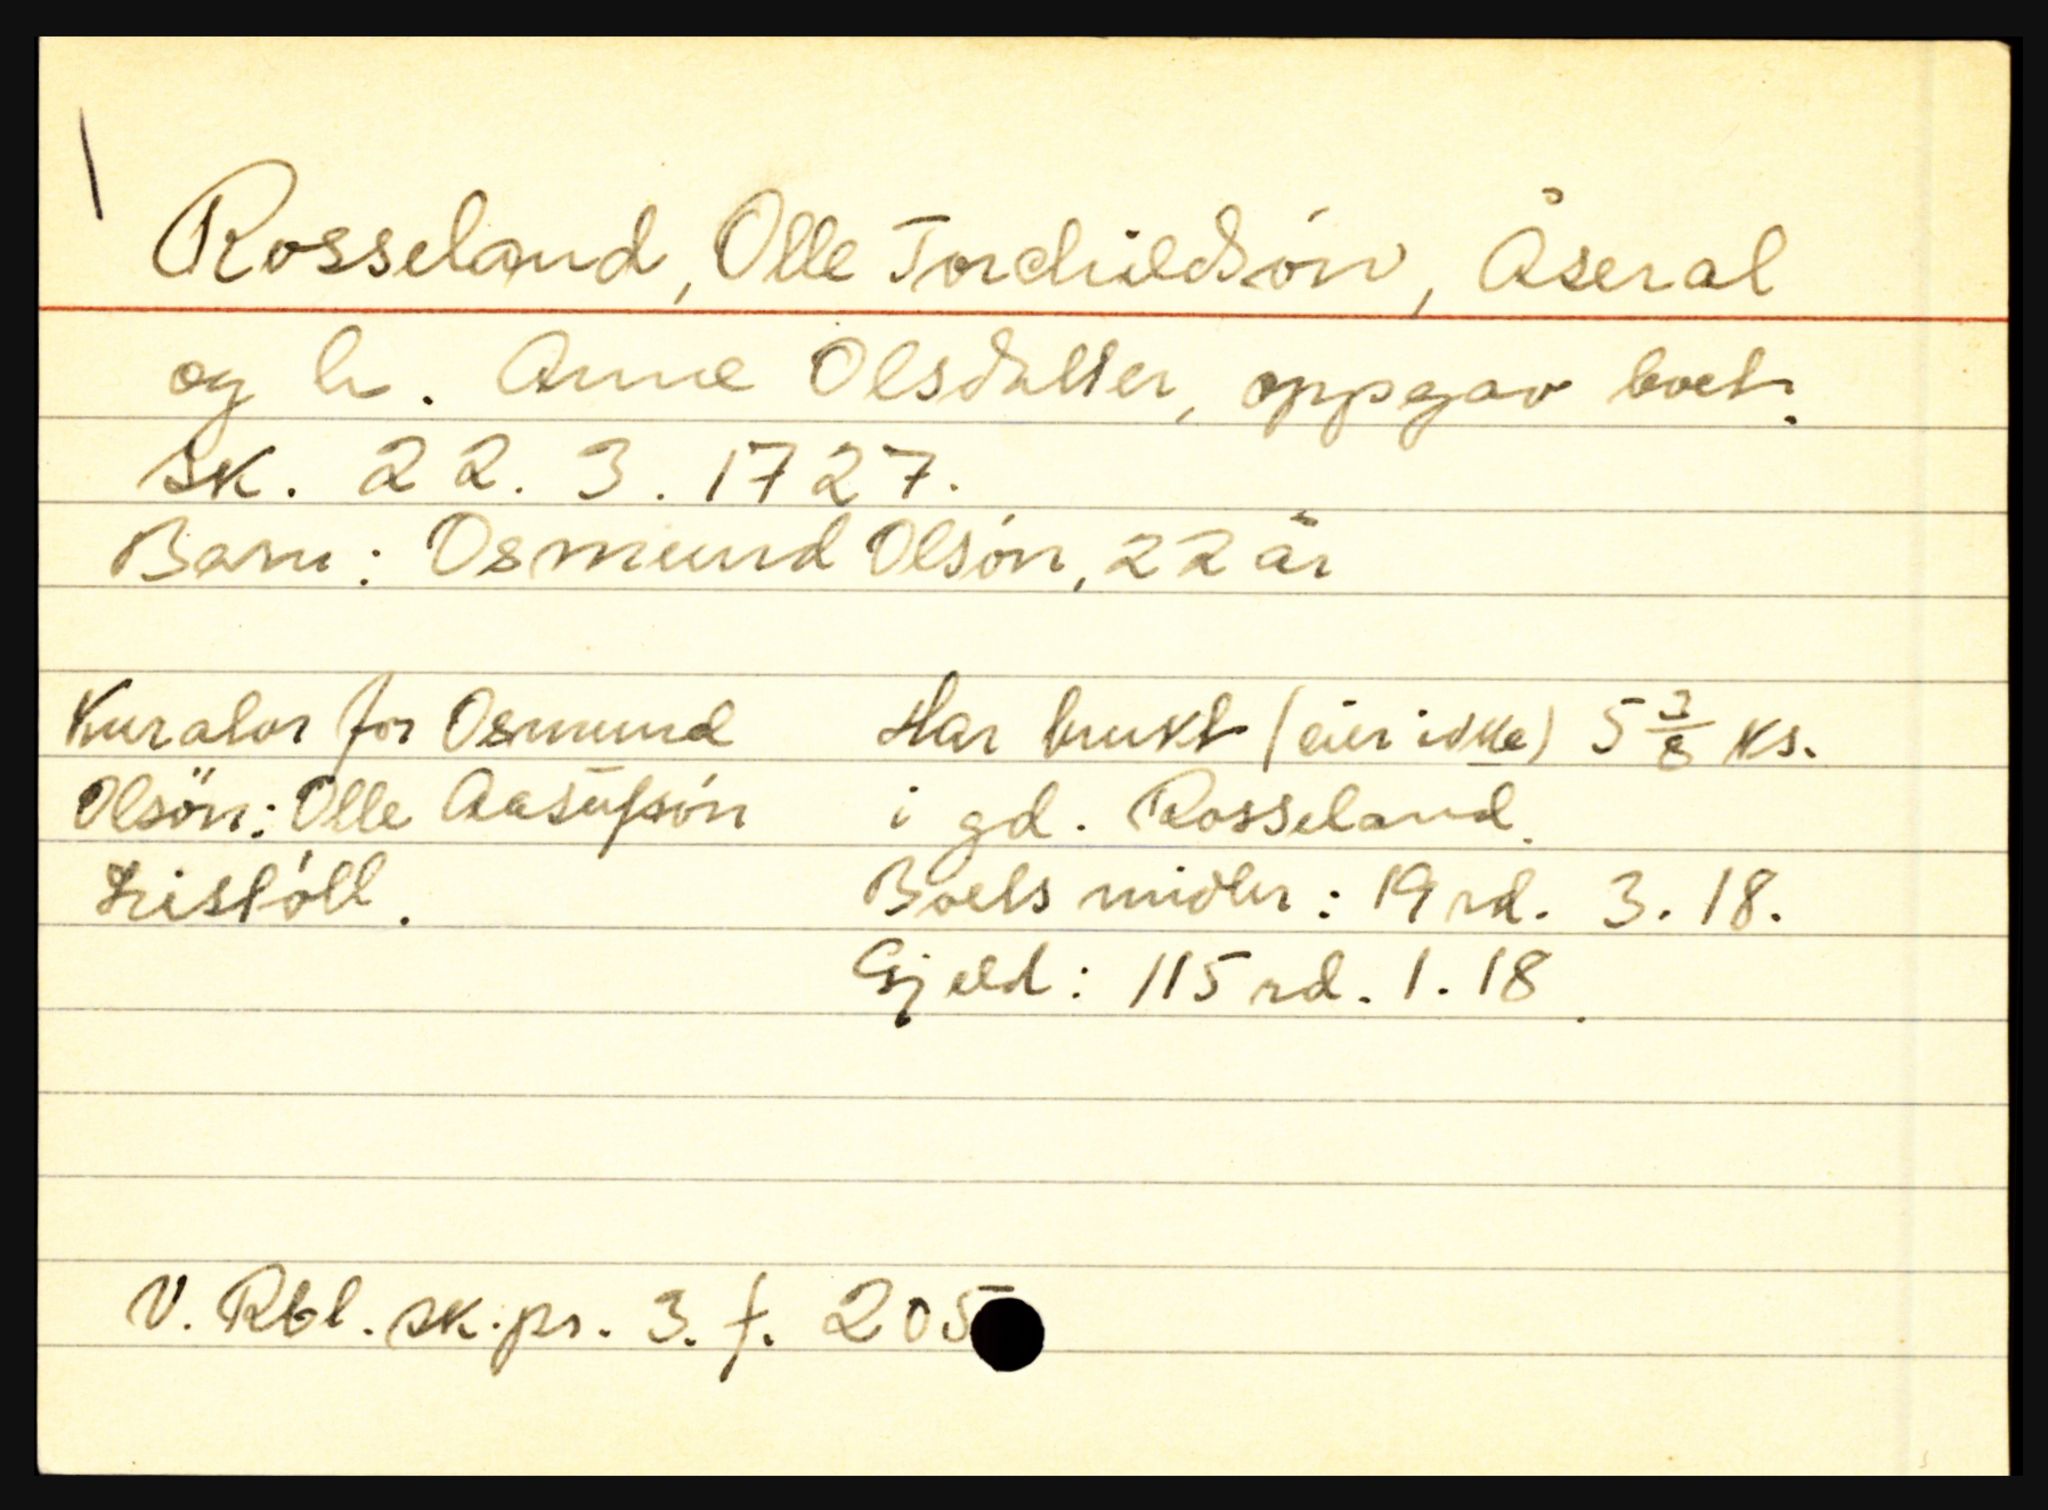 Rosseland, Olle Torchildsón, Åseral
og h. Anne Olsdatter, oppgav boet.
sk. 22. 3. 1727.
Barn: Osmund Olsón, 22 år
Kurator for Osmund
Olsön: Olle Aasufsón
Listóll.
Har brukt (eier ikke) 5 3/8 ks.
i gd. Rosseland.
Boets midler: 19 rd. 3. 18.
Gjeld: 115 rd. 1. 18.
V. Rbl. sk. pr. 3. f. 205